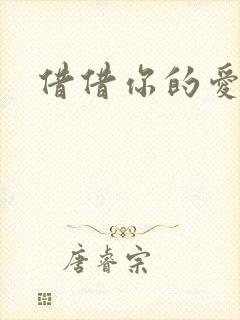 借借你的愛
唐睿宗